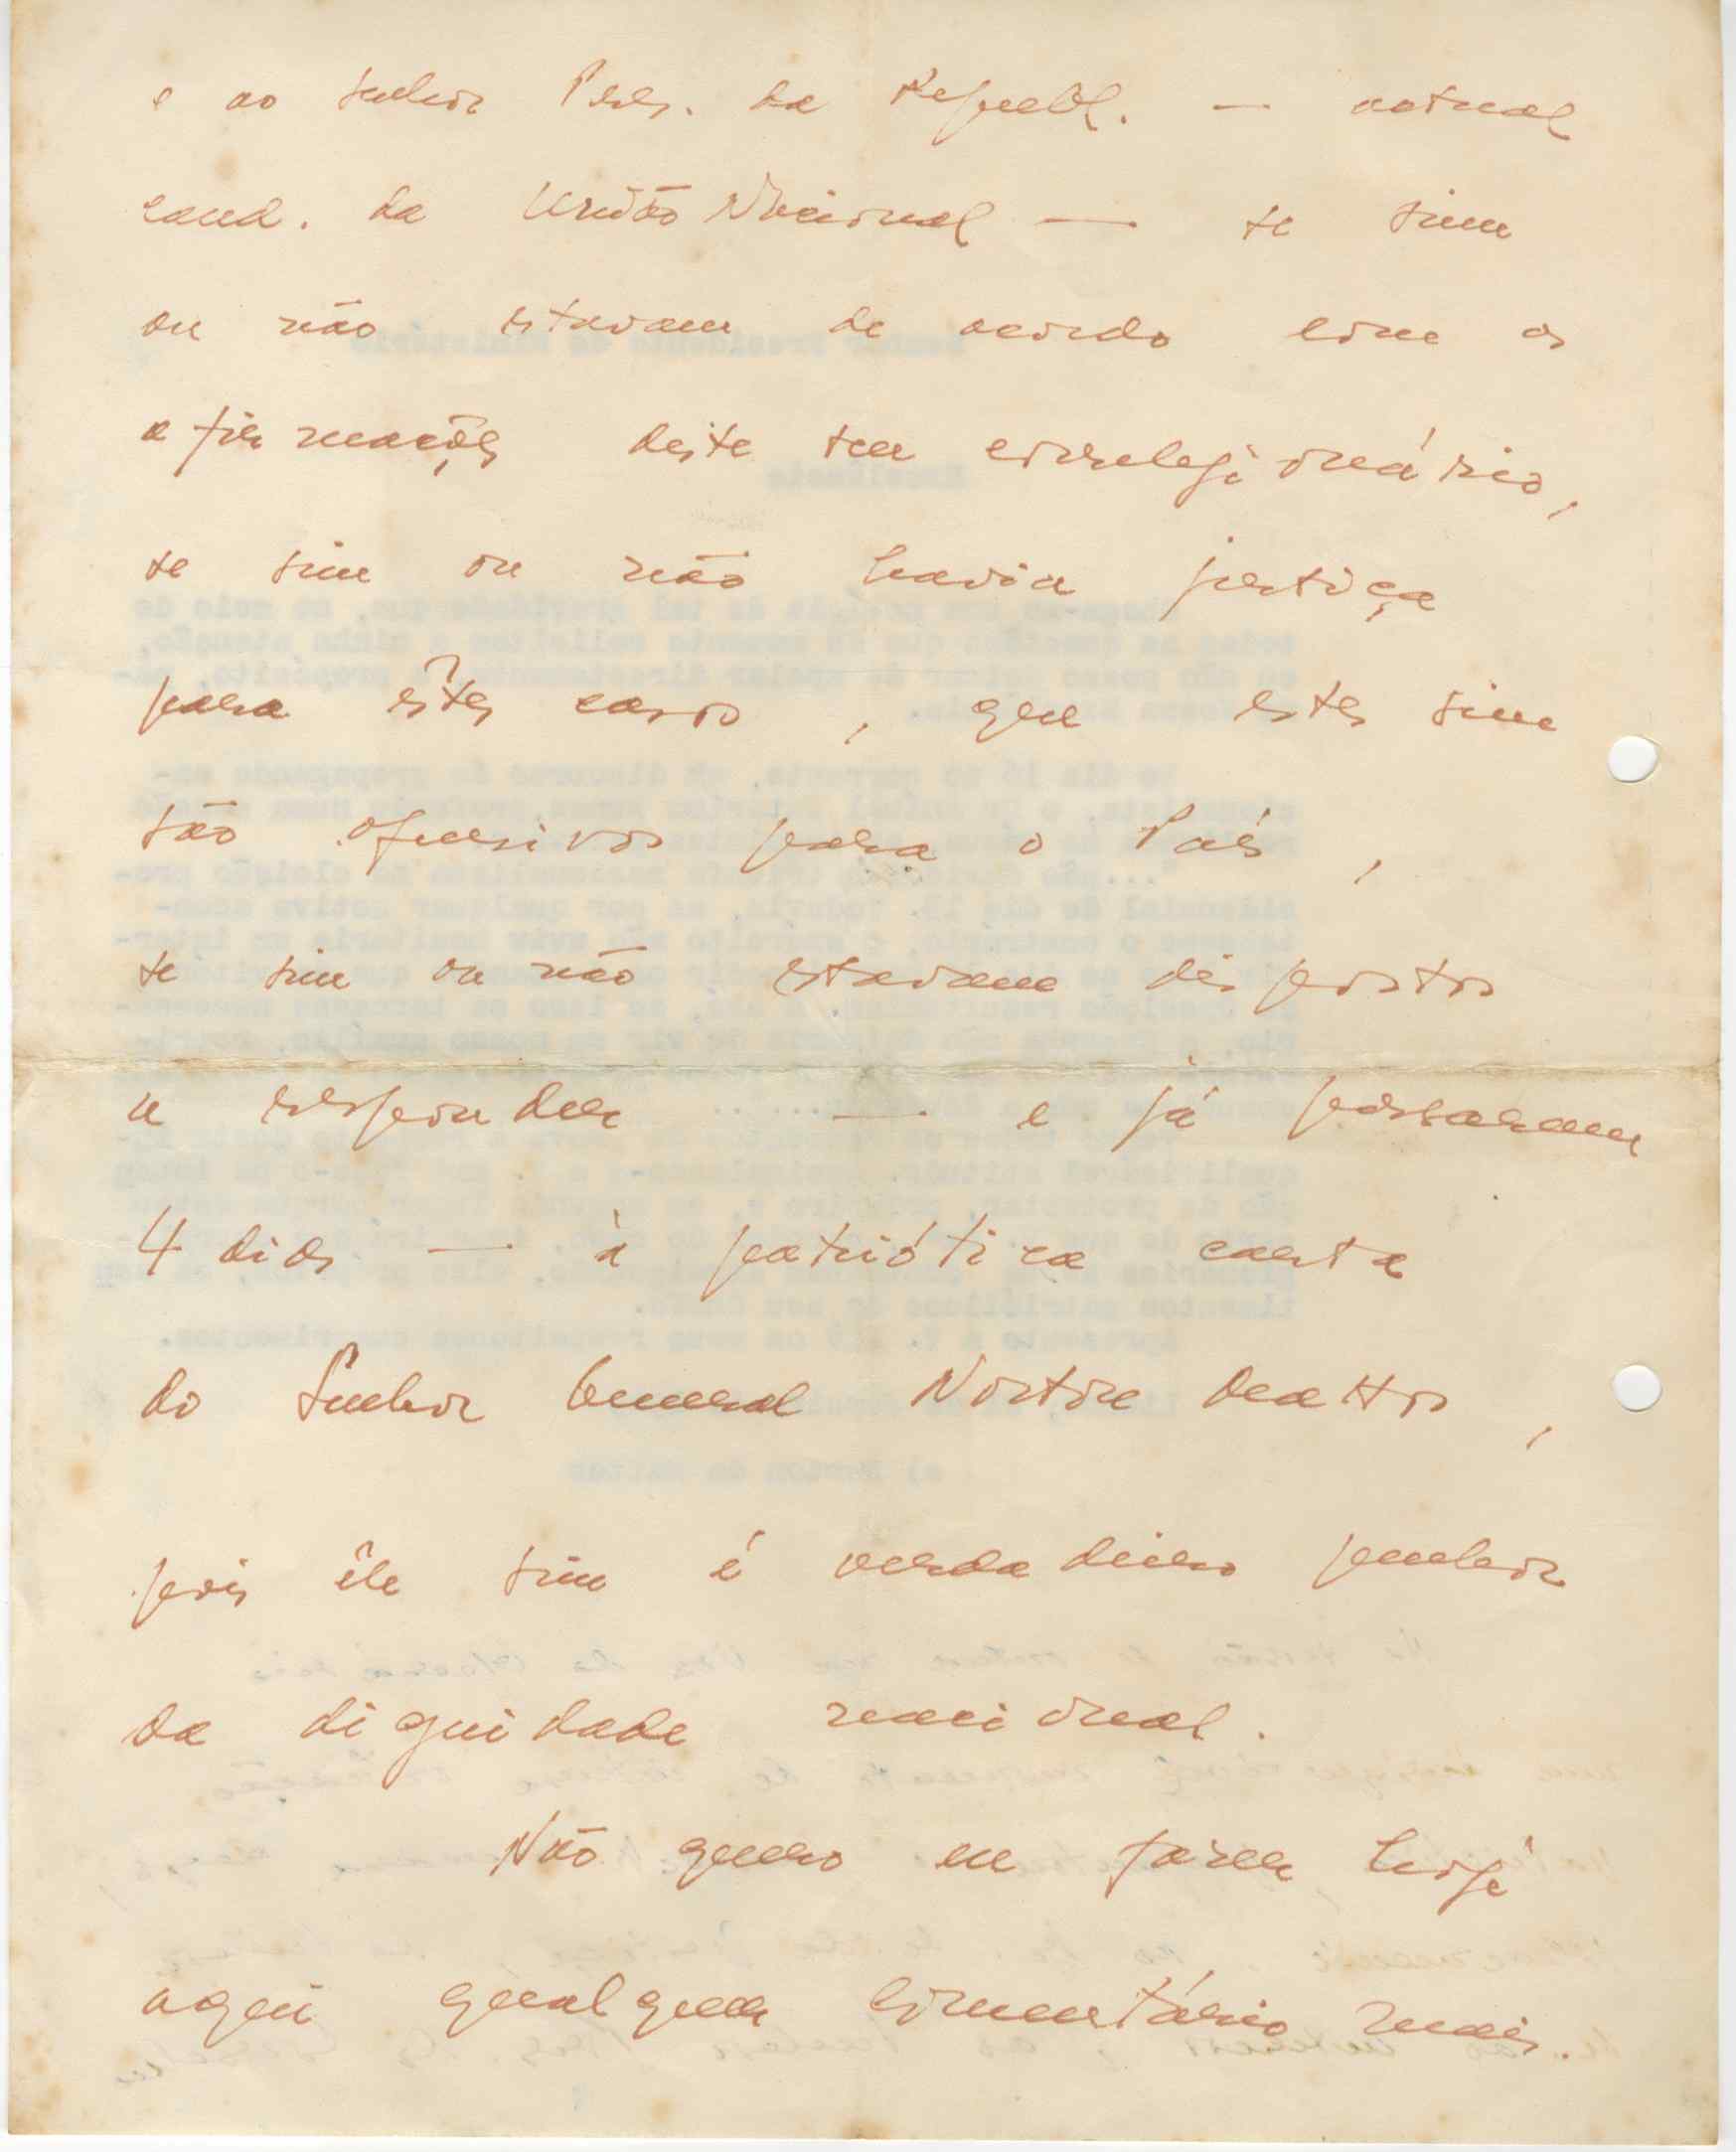 e ao Senhor Pres. da Republ. — actual
cand. da União Nacional — se sim
ou não estavam de acordo com as
afirmações deste seu correlegionário,
se sim ou não havia justiça
para êstes casos, que estes sim
são ofensivos para o País,
se sim ou não estavam dispostos
a responder — e já passaram
4 dias — à patriótica carta
do Senhor General Norton Mattos,
pois êle sim é verdadeiro penhor
da dignidade nacional.
Não quero eu fazer hoje
aqui qualquer comentário mais.